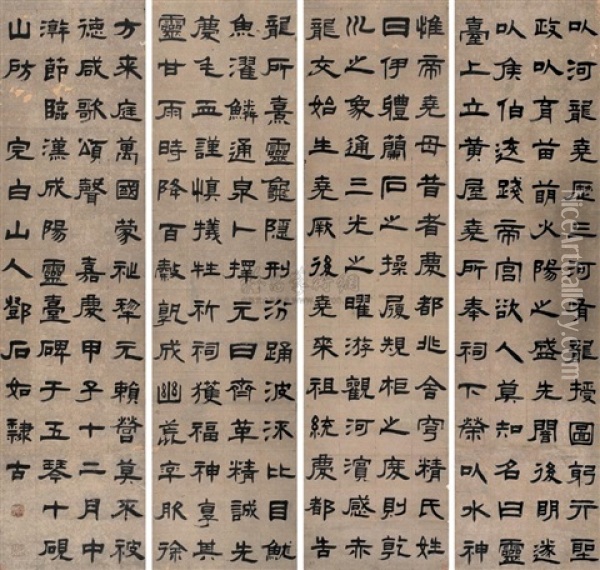 以河龍堯歷三河有龍授圖躬行聖
政以育苗萌火陽之盛先聞後明遂
以侯伯迭踐帝宮欲人莫知名曰靈
臺上立黃屋堯所奉祠下榮以水神
惟帝堯母昔者慶都兆舍穹精氏姓
曰伊體蘭石之操履規柜之度則乾
巛之象通三光之曜游觀河濱感赤
龍交始生堯厥後堯來祖統慶都告
龍所熹靈龜隱刑汾踊波沬比目魷
魚濯鱗通泉卜擇元日齊革精誠先
薦毛血謹慎犧牲祈祠獲福神享其
靈甘雨時降百穀孰成幽荒宰服徐
方來庭萬國蒙祉黎元賴營莫不被
德咸歌頌聲 嘉慶甲子十二月中
澣節臨漢成陽靈臺碑于五琴十硯
山房 完白山人鄧石如隸古